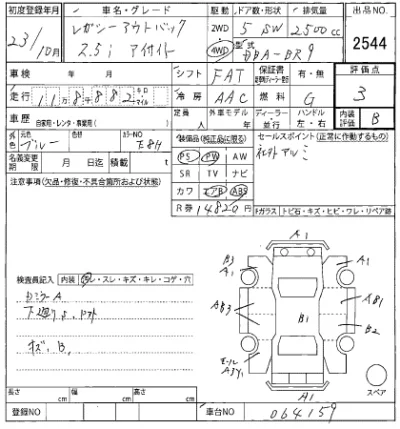 初度登録年月 車名・グレード 駆動 ドア数・形状 排気量 出品NO.
23/10月 レガシーアウトバック 2WD 5 SW 2500cc
2.5i アイサイト 4WD 型式 DBA-BR9 2544
車検 年 月 シフト FAT 保証書 有・無 評価点
走行 118882 キロ マイル 冷房 AAC 燃料 G 3
車歴 自家用・レンタ・事業用( ) 定員 人 外車モデル 年 ディーラー 並行 ハンドル 左・右 内装評価 B
元色 色 ブルー カラーNO E8H 装備品(純正品に限る) セールスポイント(正常に作動するもの)
名義変更期限 月 日迄 積載 t PS PW AW 社外アルミ
注意事項(欠品・修復・不具合箇所および状態) SR TV ナビ
カワ エアB ABS
R券 14820円 Fガラス トビ石・キズ・ヒビ・ワレ・リペア跡
A1
B3 A1 A1
検査員記入 内装 ヨゴレ・スレ・キズ・キレ・コゲ・穴
AB3 B1 AB1
B2
キズ、B、
モール
A1
スペア
長さ cm 幅 cm 高さ cm
登録NO 車台NO 064159